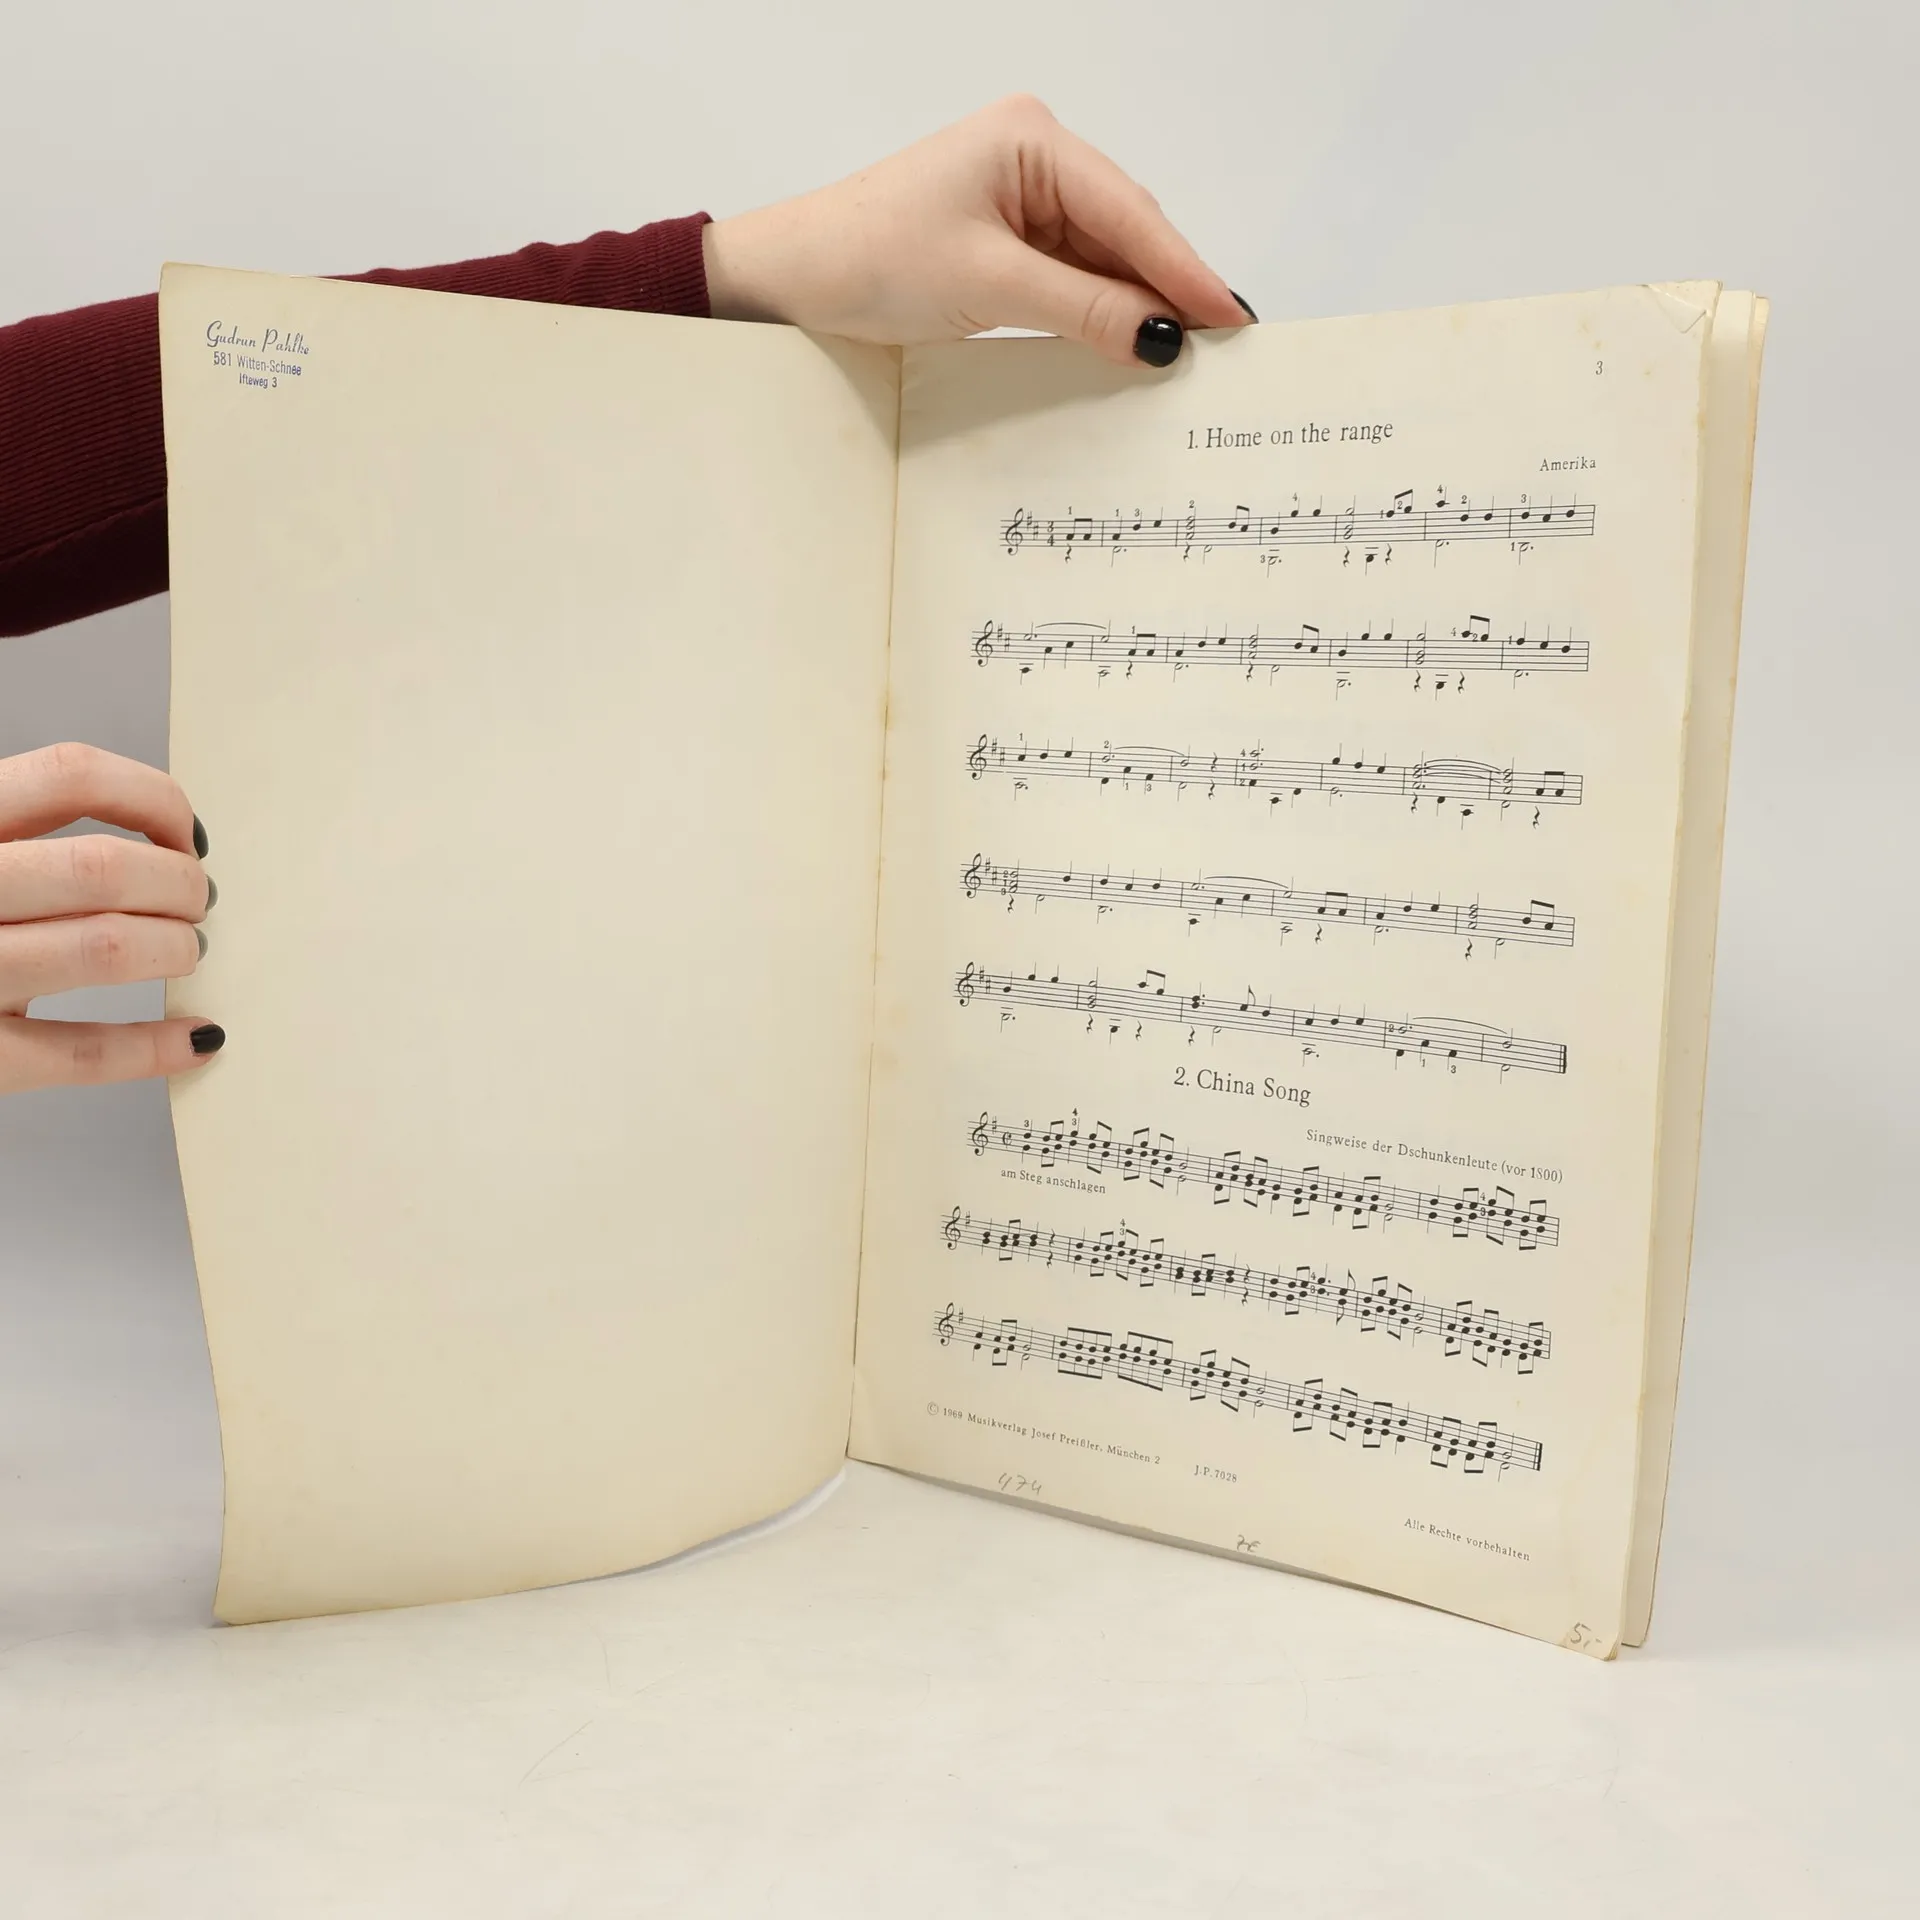 Gudrun Pahlke
581 Witten-Schnee
Ifteweg 3
3
1. Home on the range
Amerika
2. China Song
Singweise der Dschunkenleute (vor 1800)
am Steg anschlagen
© 1969 Musikverlag Josef Preißler, München 2
J.P. 7028
474
Alle Rechte vorbehalten
5,-